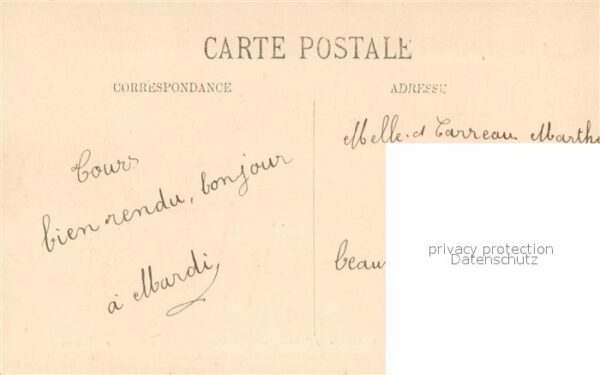 CARTE POSTALE
CORRESPONDANCE
ADRESSE
Tours
bien rendu, bonjour
à Mardi,
Melle. Carreau Marthe
beau
privacy protection
Datenschutz